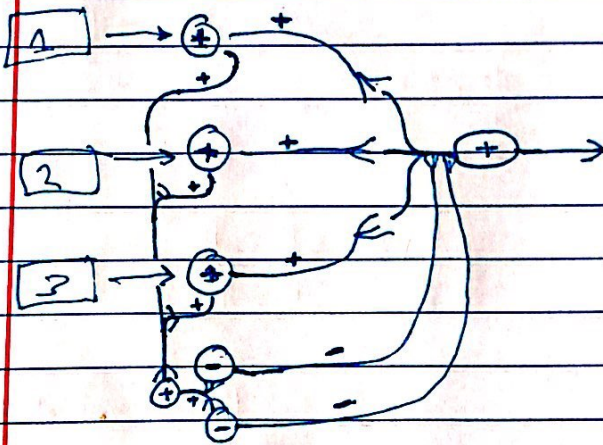 1
+
+
+
2
+
+
+
+
3
+
+
+
-
-
+
+
-
-